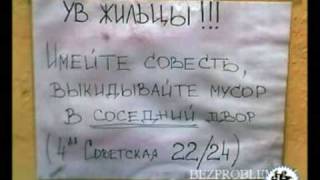 УВ ЖИЛЬЦЫ!!!
ИМЕЙТЕ СОВЕСТЬ,
ВЫКИДЫВАЙТЕ МУСОР
В СОСЕДНИЙ ДВОР
(4ая СОВЕТСКАЯ 22/24)
BEZPROBLEM